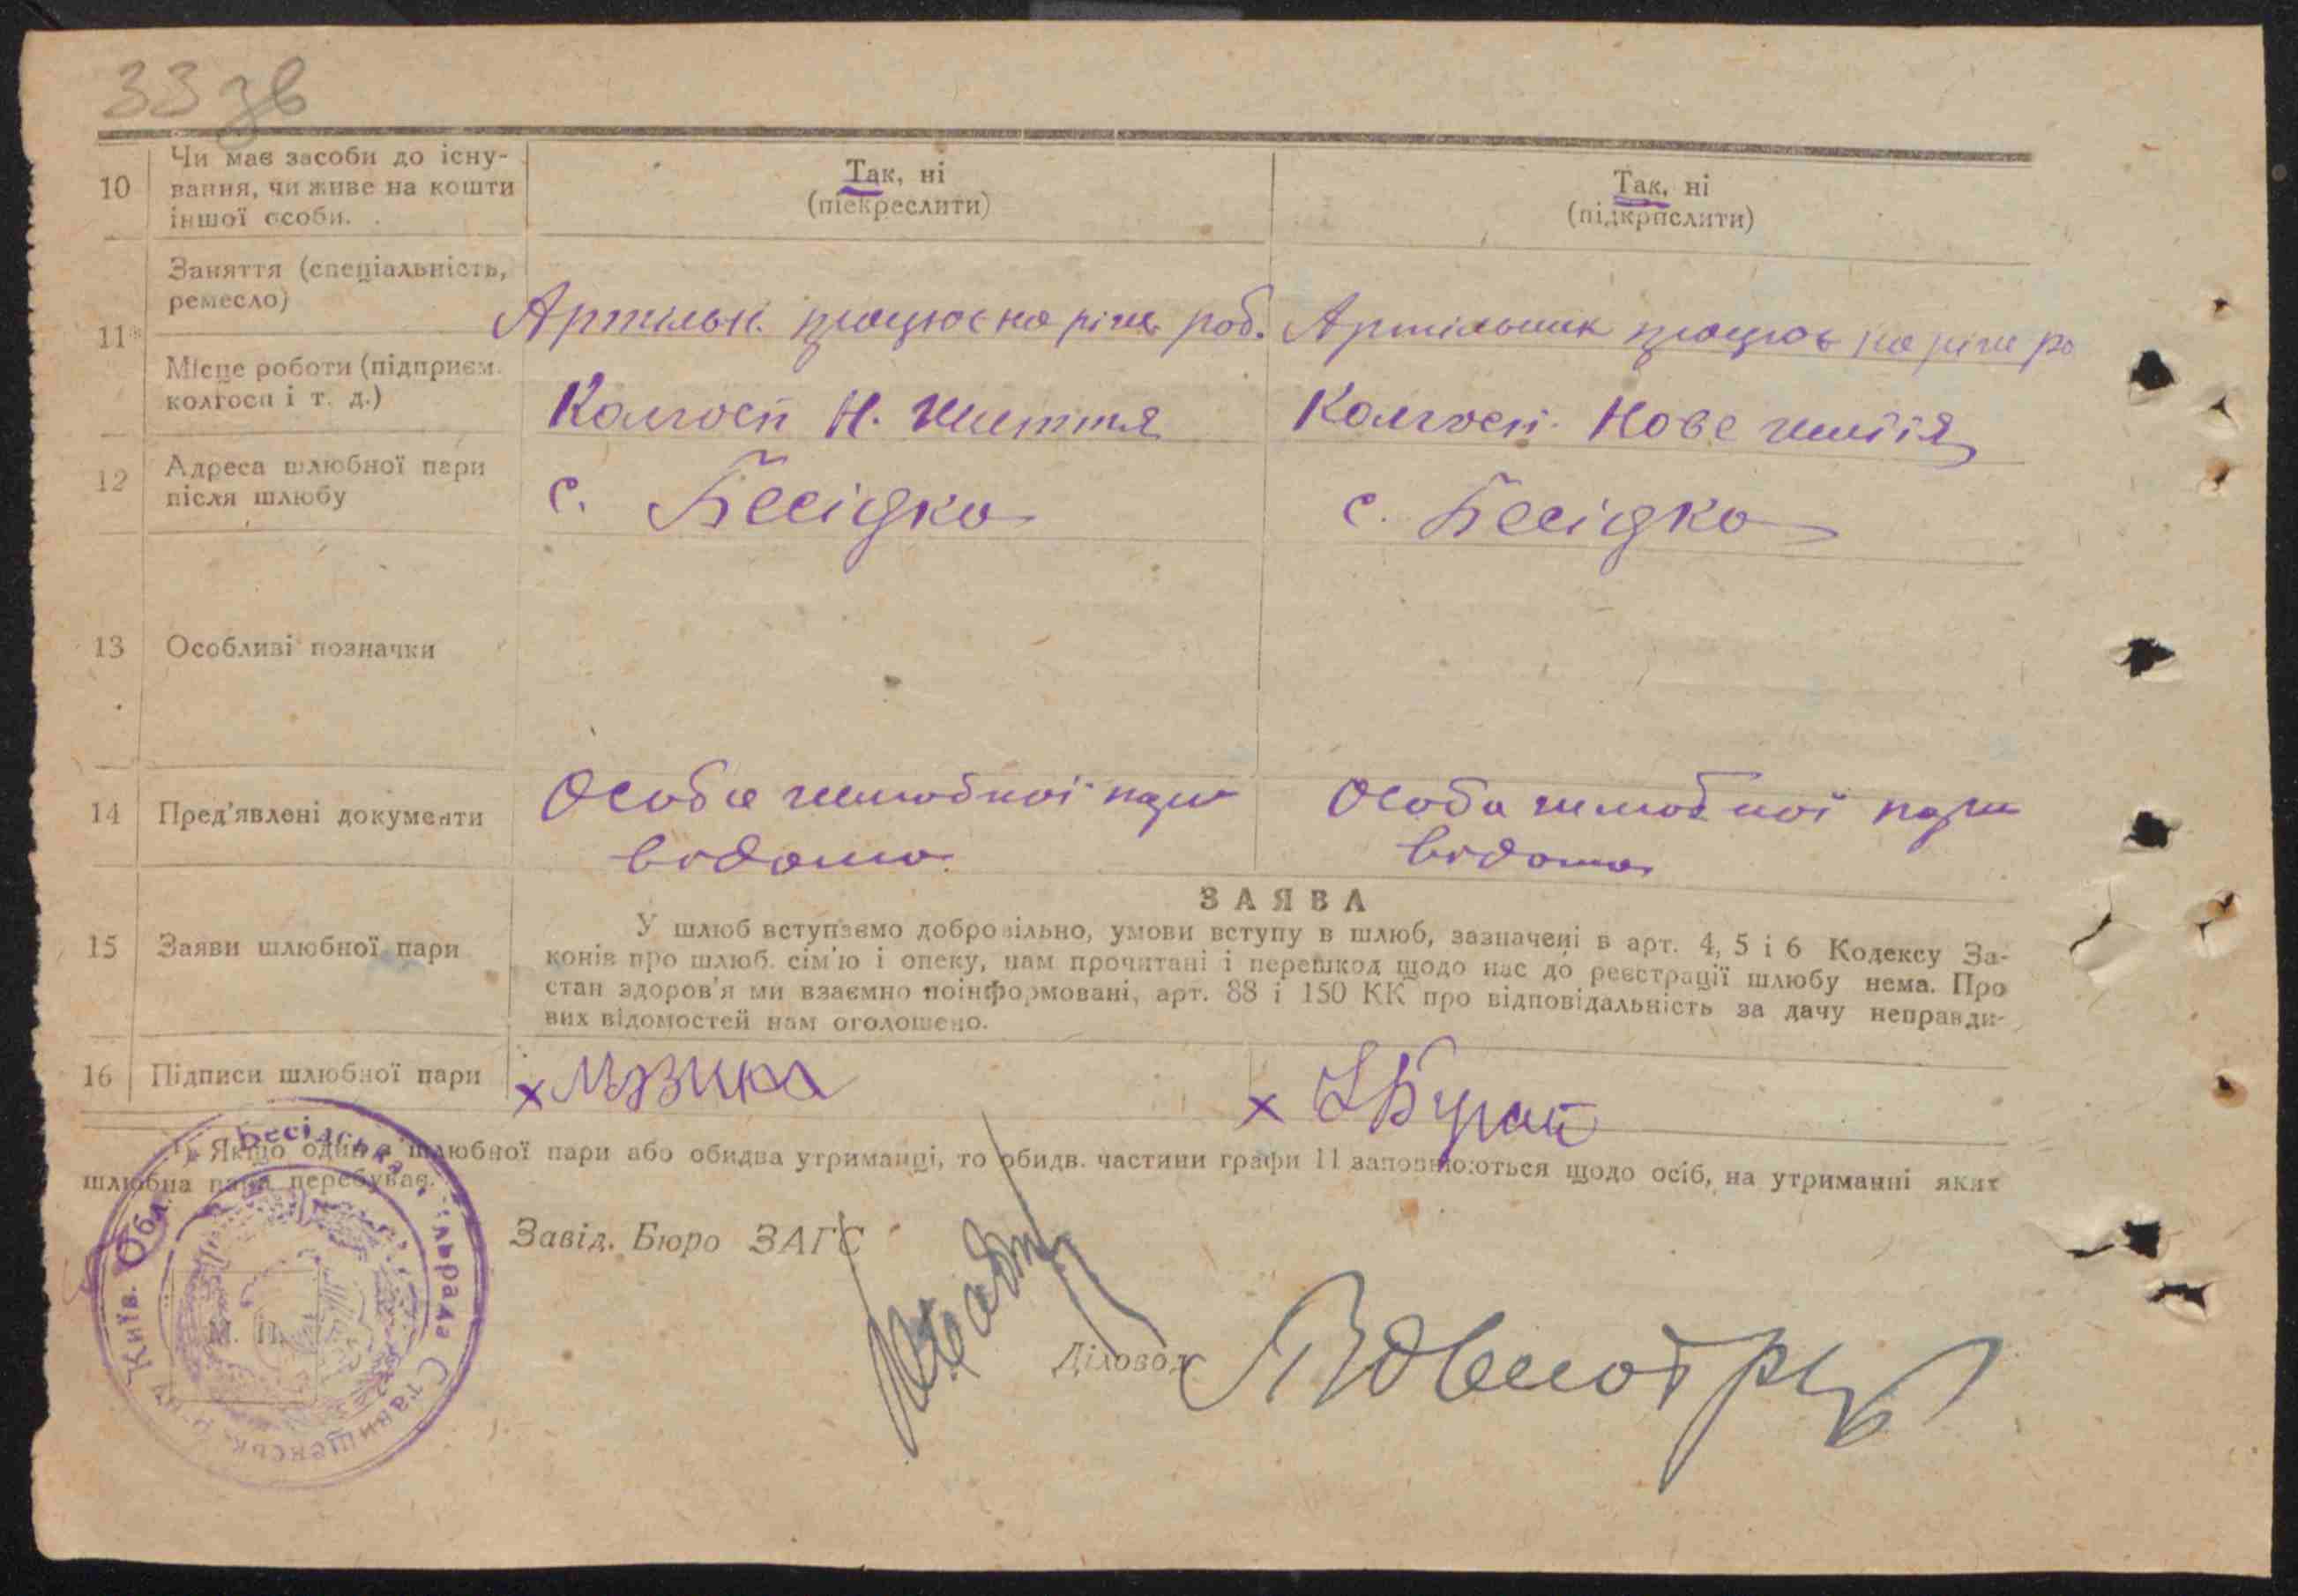 33 зв
10 Чи має засоби до існу-
вання, чи живе на кошти
іншої особи.
Так, ні
(піекреслити)
Так, ні
(підкрпслити)
11 Заняття (спеціальність,
ремесло)
Артільн. працює на різн. роб.
Артільник працює на різн ро
Місце роботи (підприєм.
колгосп і т. д.)
Колгосп Н. Життя
Колгосп. Нове життя
12 Адреса шлюбної пари
після шлюбу
с. Бесідка
с. Бесідка
13 Особливі позначки
14 Пред'явлені документи
Особа шлюбної пари
відома
Особа шлюбної пари
відома
ЗАЯВА
15 Заяви шлюбної пари
У шлюб вступаємо добровільно, умови вступу в шлюб, зазначені в арт. 4, 5 і 6 Кодексу За-
конів про шлюб. сім'ю і опеку, нам прочитані і перешкод щодо нас до реєстрації шлюбу нема. Про
стан здоров'я ми взаємно поінформовані, арт. 88 і 150 КК про відповідальність за дачу неправди-
вих відомостей нам оголошено.
16 Підписи шлюбної пари
х Музика
х
Якщо один з шлюбної пари або обидва утриманці, то обидв. частини графи 11 заповнюються щодо осіб, на утриманні яких
шлюбна пара перебуває.
Завід. Бюро ЗАГС
Діловод
М. П.
Бесідська сільрада Ставищенськ. р-ну Київ. Обл.